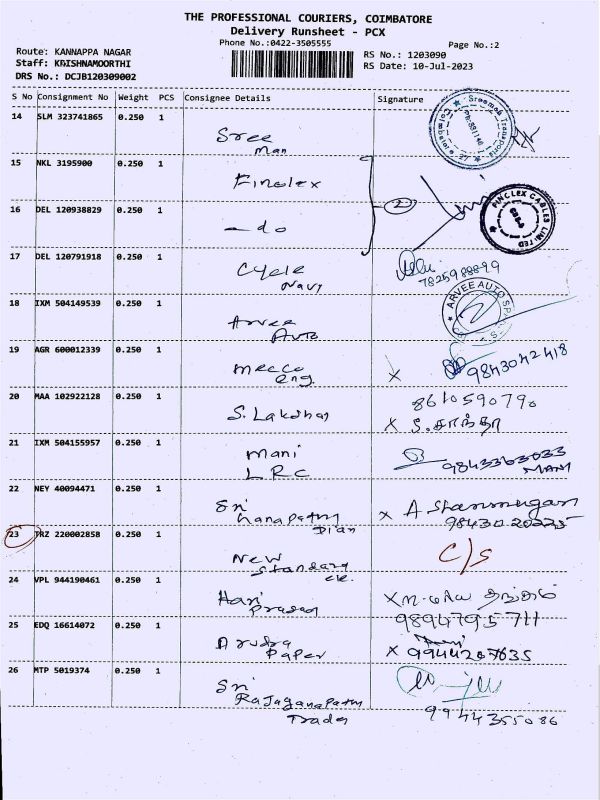 THE PROFESSIONAL COURIERS, COIMBATORE
Delivery Runsheet - PCX
Phone No.:0422-3505555
Page No.:2
Route: KANNAPPA NAGAR
Staff: KRISHNAMOORTHI
DRS No.: DCJB120309002
RS No.: 1203090
RS Date: 10-Jul-2023
S No Consignment No Weight PCS Consignee Details Signature
14 SLM 323741865 0.250 1
Sree
man
15 NKL 3195900 0.250 1
Finolex
2
FINOLEX CABLES LIMITED
16 DEL 120938829 0.250 1
- do
17 DEL 120791918 0.250 1
Cycle
Navy
7825988899
18 IXM 504149539 0.250 1
Arvee
Auto
ARVEE AUTO
19 AGR 600012339 0.250 1
mecco
eng.
X
9843042418
20 MAA 102922128 0.250 1
S. Lakshan
8610590790
X S. சாந்தா
21 IXM 504155957 0.250 1
mani
LRC
9843363033
MANI
22 NEY 40094471 0.250 1
Sri
Ganapathy
X A Shanmugan
9843020225
23 TRZ 220002858 0.250 1
New
Standard
C/S
24 VPL 944190461 0.250 1
Hari
Prasad
9894795711
25 EDQ 16614072 0.250 1
Arudra
Paper
X 9944267635
26 MTP 5019374 0.250 1
Sri
Rajaganapathy
Trader
9944355086